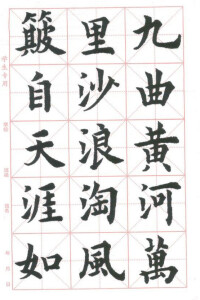 九曲黃河萬
里沙浪淘風
簸自天涯如